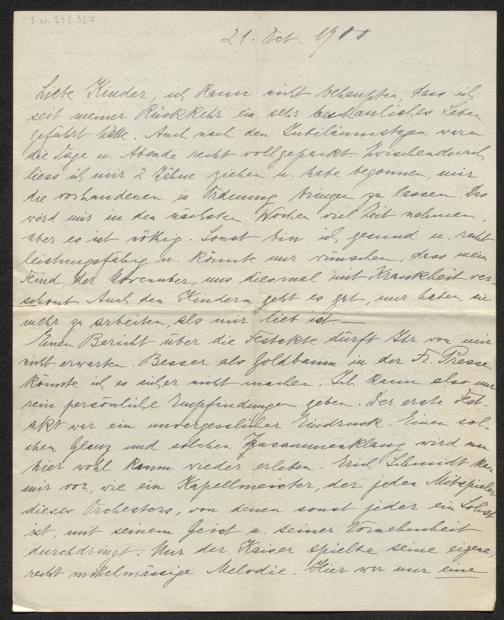 I.N. 232.327
21. Oct. 1910
Liebe Kinder, ich kann nicht behaupten, dass ich
seit meiner Rückkehr ein sehr beschauliches Leben
geführt hätte. Auch nach den Jubiläumstagen waren
die Tage u. Abende recht vollgepackt. Zwischendurch
liess ich mir 2 Zähne ziehen u. habe begonnen, mir
die vorhandenen in Ordnung bringen zu lassen. Das
wird mir in den nächsten Wochen viel Zeit nehmen,
aber es ist nötig. Sonst bin ich gesund u. recht
leistungsfähig u. könnte nur wünschen, dass mein
Feind, der November, uns diesmal mit Krankheit ver-
schont. Auch den Kindern geht es gut, nur haben sie
mehr zu arbeiten, als mir lieb ist.
Einen Bericht über die Festakte dürft Ihr von mir
nicht erwarten. Besser als Goldbaum in der Fr. Presse
könnte ich es sicher nicht machen. Ich kann also nur
rein persönliche Empfindungen geben. Der erste Fest-
akt war ein unvergesslicher Eindruck. Einen sol-
chen Glanz und solchen Zusammenklang wird man
hier wohl kaum wieder erleben. Erich Schmidt kam
mir vor, wie ein Kapellmeister, der jeden Mitspieler
dieses Orchesters, von denen sonst jeder ein Solist
ist, mit seinem Geist u. seiner Vornehmheit
durchdringt. Nur der Kaiser spielte seine eigene,
recht mittelmässige Melodie. Hier war nur eine